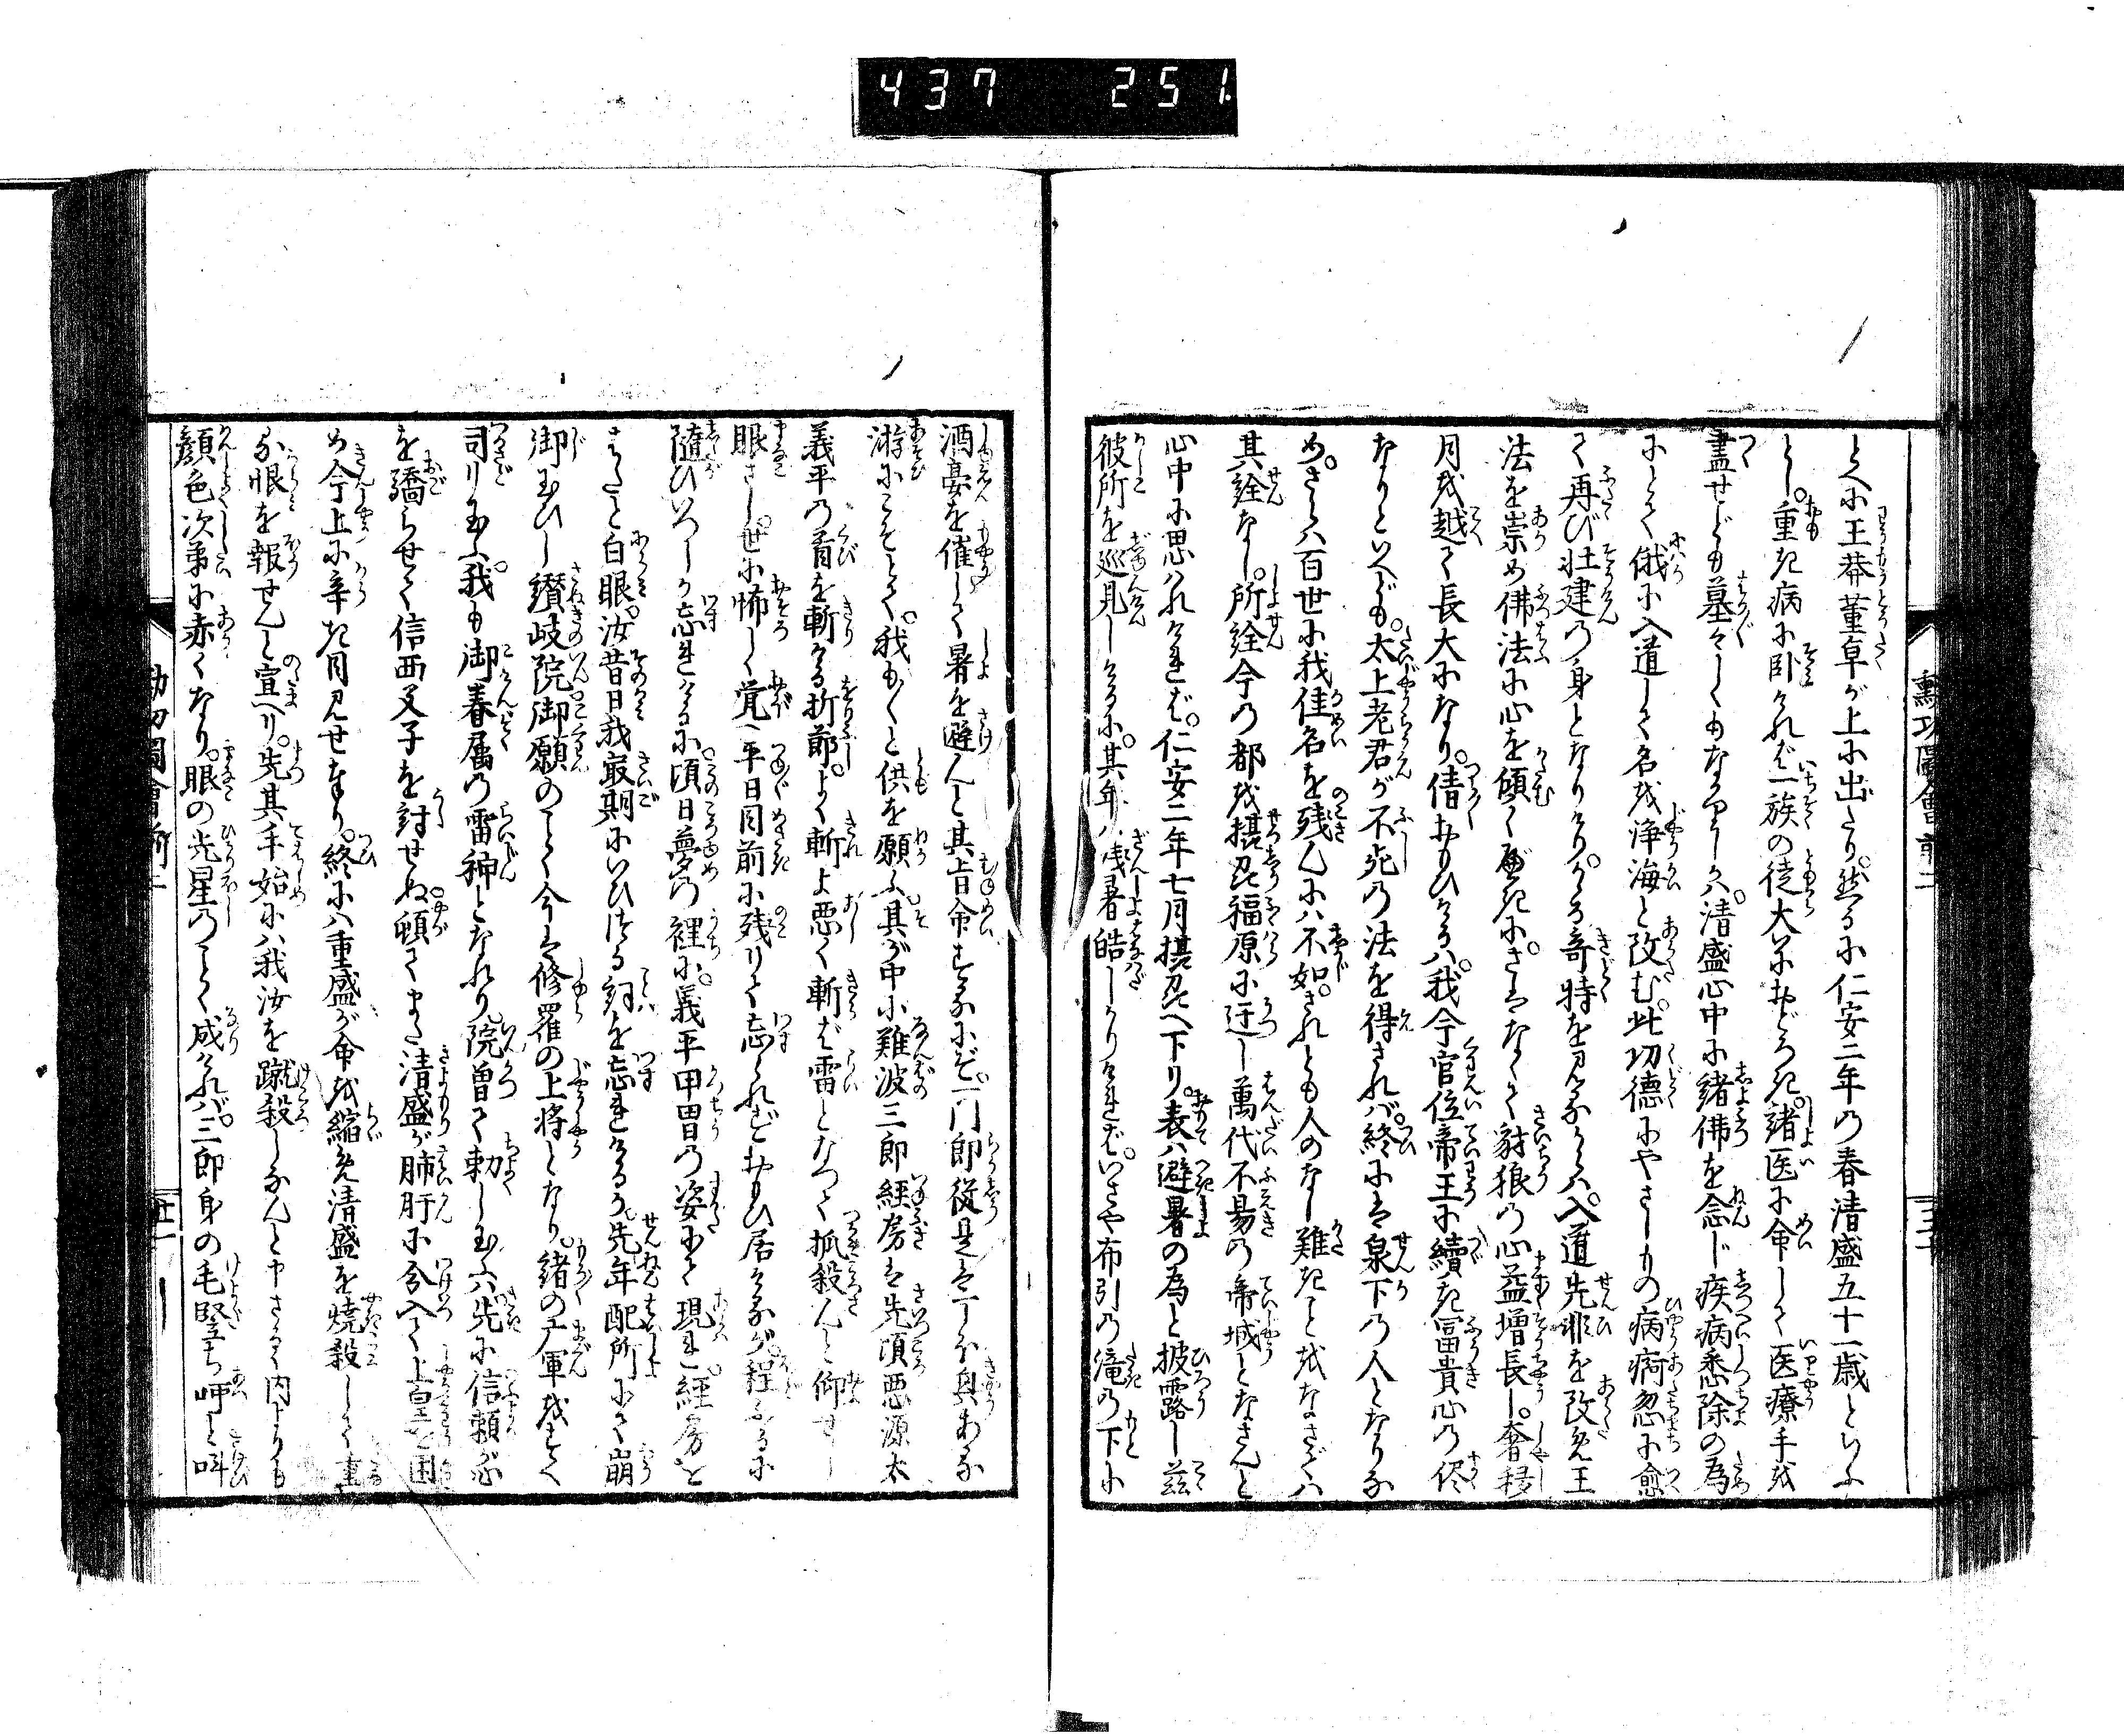 437 251
勲功圖會前二
とへに王莽董卓が上に出たり。然るに仁安二年の春清盛五十一歳といふ
とし。重き病に卧ければ一族の徒大におどろき。諸医に命して医療手を
盡せども墓々しくもなかりしかバ。清盛心中に諸佛を念じ疾病悉除の為
にとて俄に入道して名を浄海と改む。此切徳にやさしもの病痾忽に愈
て再び壮建の身となりけり。かゝる奇特を見るからハ。入道先非を改め王
法を崇め佛法に心を傾くべきに。さはなくて豺狼の心益増長し。奢移
月を越て長大になり。倩おもひけるハ。我今官位帝王に續き冨貴心の侭
なりといへども。太上老君が不死の法を得されバ。終には泉下の人となりな
め。さらハ百世に我佳名を残んにハ不如。されとも人のなし難きことをなさゞハ
其詮なし。所詮今の都を摂州福原に迂し萬代不易の帝城となさんと
心中に思ハれけれバ。仁安二年七月摂州へ下り。表ハ避暑の為と披露し茲
彼所を巡見しけるに。其年ハ残暑皓しかりけれバ。いざや布引の滝の下に
酒宴を催して暑を避んと其旨命ずるにぞ。一門郎従是は一しほ興ある
游にこそとて。我も〱と供を願ふ其が中に難波三郎経房は先頃悪源太
義平の首を斬ける折節。よく斬よ悪く斬バ雷となつて抓殺んと仰せし
眼ざし。世に怖しく覚へ平日目前に残りて忘られどおもひ居けるが。程ふるに
隨ひいつしか忘れけるに。頃日夢の裡に。義平甲冑の姿にて現れ。経房を
はたと白眼。汝昔日我最期にいひつる詞を忘れけるか。先年配所にて崩
御玉ひし讃岐院御願のごとく今は修羅の上将となり。諸の軍をすべ
司り玉ふ。我も御眷属の雷神となれり。院曽て勅し玉ふハ先に信頼が心
を驕らせて信西父子を討せぬ。頓てまた清盛が肺肝に分入て上皇を困
め今上に辛き目見せなり。終にハ重盛が命を縮め清盛を焼殺して
が恨を報せんと宣へり。先其手始にハ我汝を蹴殺しなんと申さるゝ内よりも
顔色次第に赤くなり。眼の光星のごとく成ければ。三郎身の毛竪ち呀と呌
勲功圖會前二